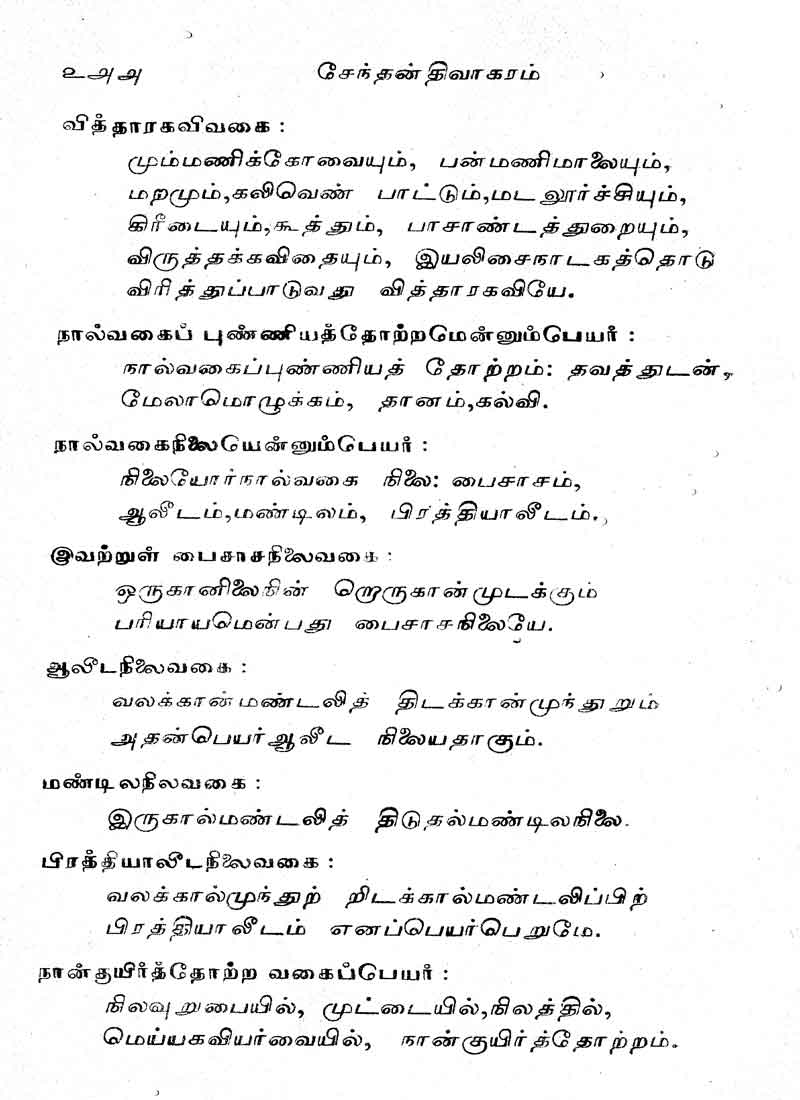 ௨௮௮ சேந்தன்திவாகரம்
வித்தாரகவிவகை :
மும்மணிக்கோவையும், பன்மணிமாலையும்,
மறமும்,கலிவெண் பாட்டும்,மடலூர்ச்சியும்,
கிரீடையும்,கூத்தும், பாசாண்டத்துறையும்,
விருத்தக்கவிதையும், இயலிசைநாடகத்தொடு
விரித்துப்பாடுவது வித்தாரகவியே.
நால்வகைப் புண்ணியத்தோற்றமென்னும்பெயர் :
நால்வகைப்புண்ணியத் தோற்றம்: தவத்துடன்,
மேலாமொழுக்கம், தானம்,கல்வி.
நால்வகைநிலையென்னும்பெயர் :
நிலையோர்நால்வகை நிலை: பைசாசம்,
ஆலீடம்,மண்டிலம், பிரத்தியாலீடம்.
இவற்றுள் பைசாசநிலைவகை :
ஒருகானிலைநின் றொருகான்முடக்கும்
பரியாயமென்பது பைசாசநிலையே.
ஆலீடநிலைவகை :
வலக்கான்மண்டலித் திடக்கான்முந்துறும்
அதன்பெயர்ஆலீட நிலையதாகும்.
மண்டிலநிலவகை :
இருகால்மண்டலித் திடுதல்மண்டிலநிலை.
பிரத்தியாலீடநிலைவகை :
வலக்கால்முந்துற் றிடக்கால்மண்டலிப்பிற்
பிரத்தியாலீடம் எனப்பெயர்பெறுமே.
நான்குயிர்த்தோற்ற வகைப்பெயர் :
நிலவுறுபையில், முட்டையில்,நிலத்தில்,
மெய்யகவியர்வையில், நான்குயிர்த்தோற்றம்.